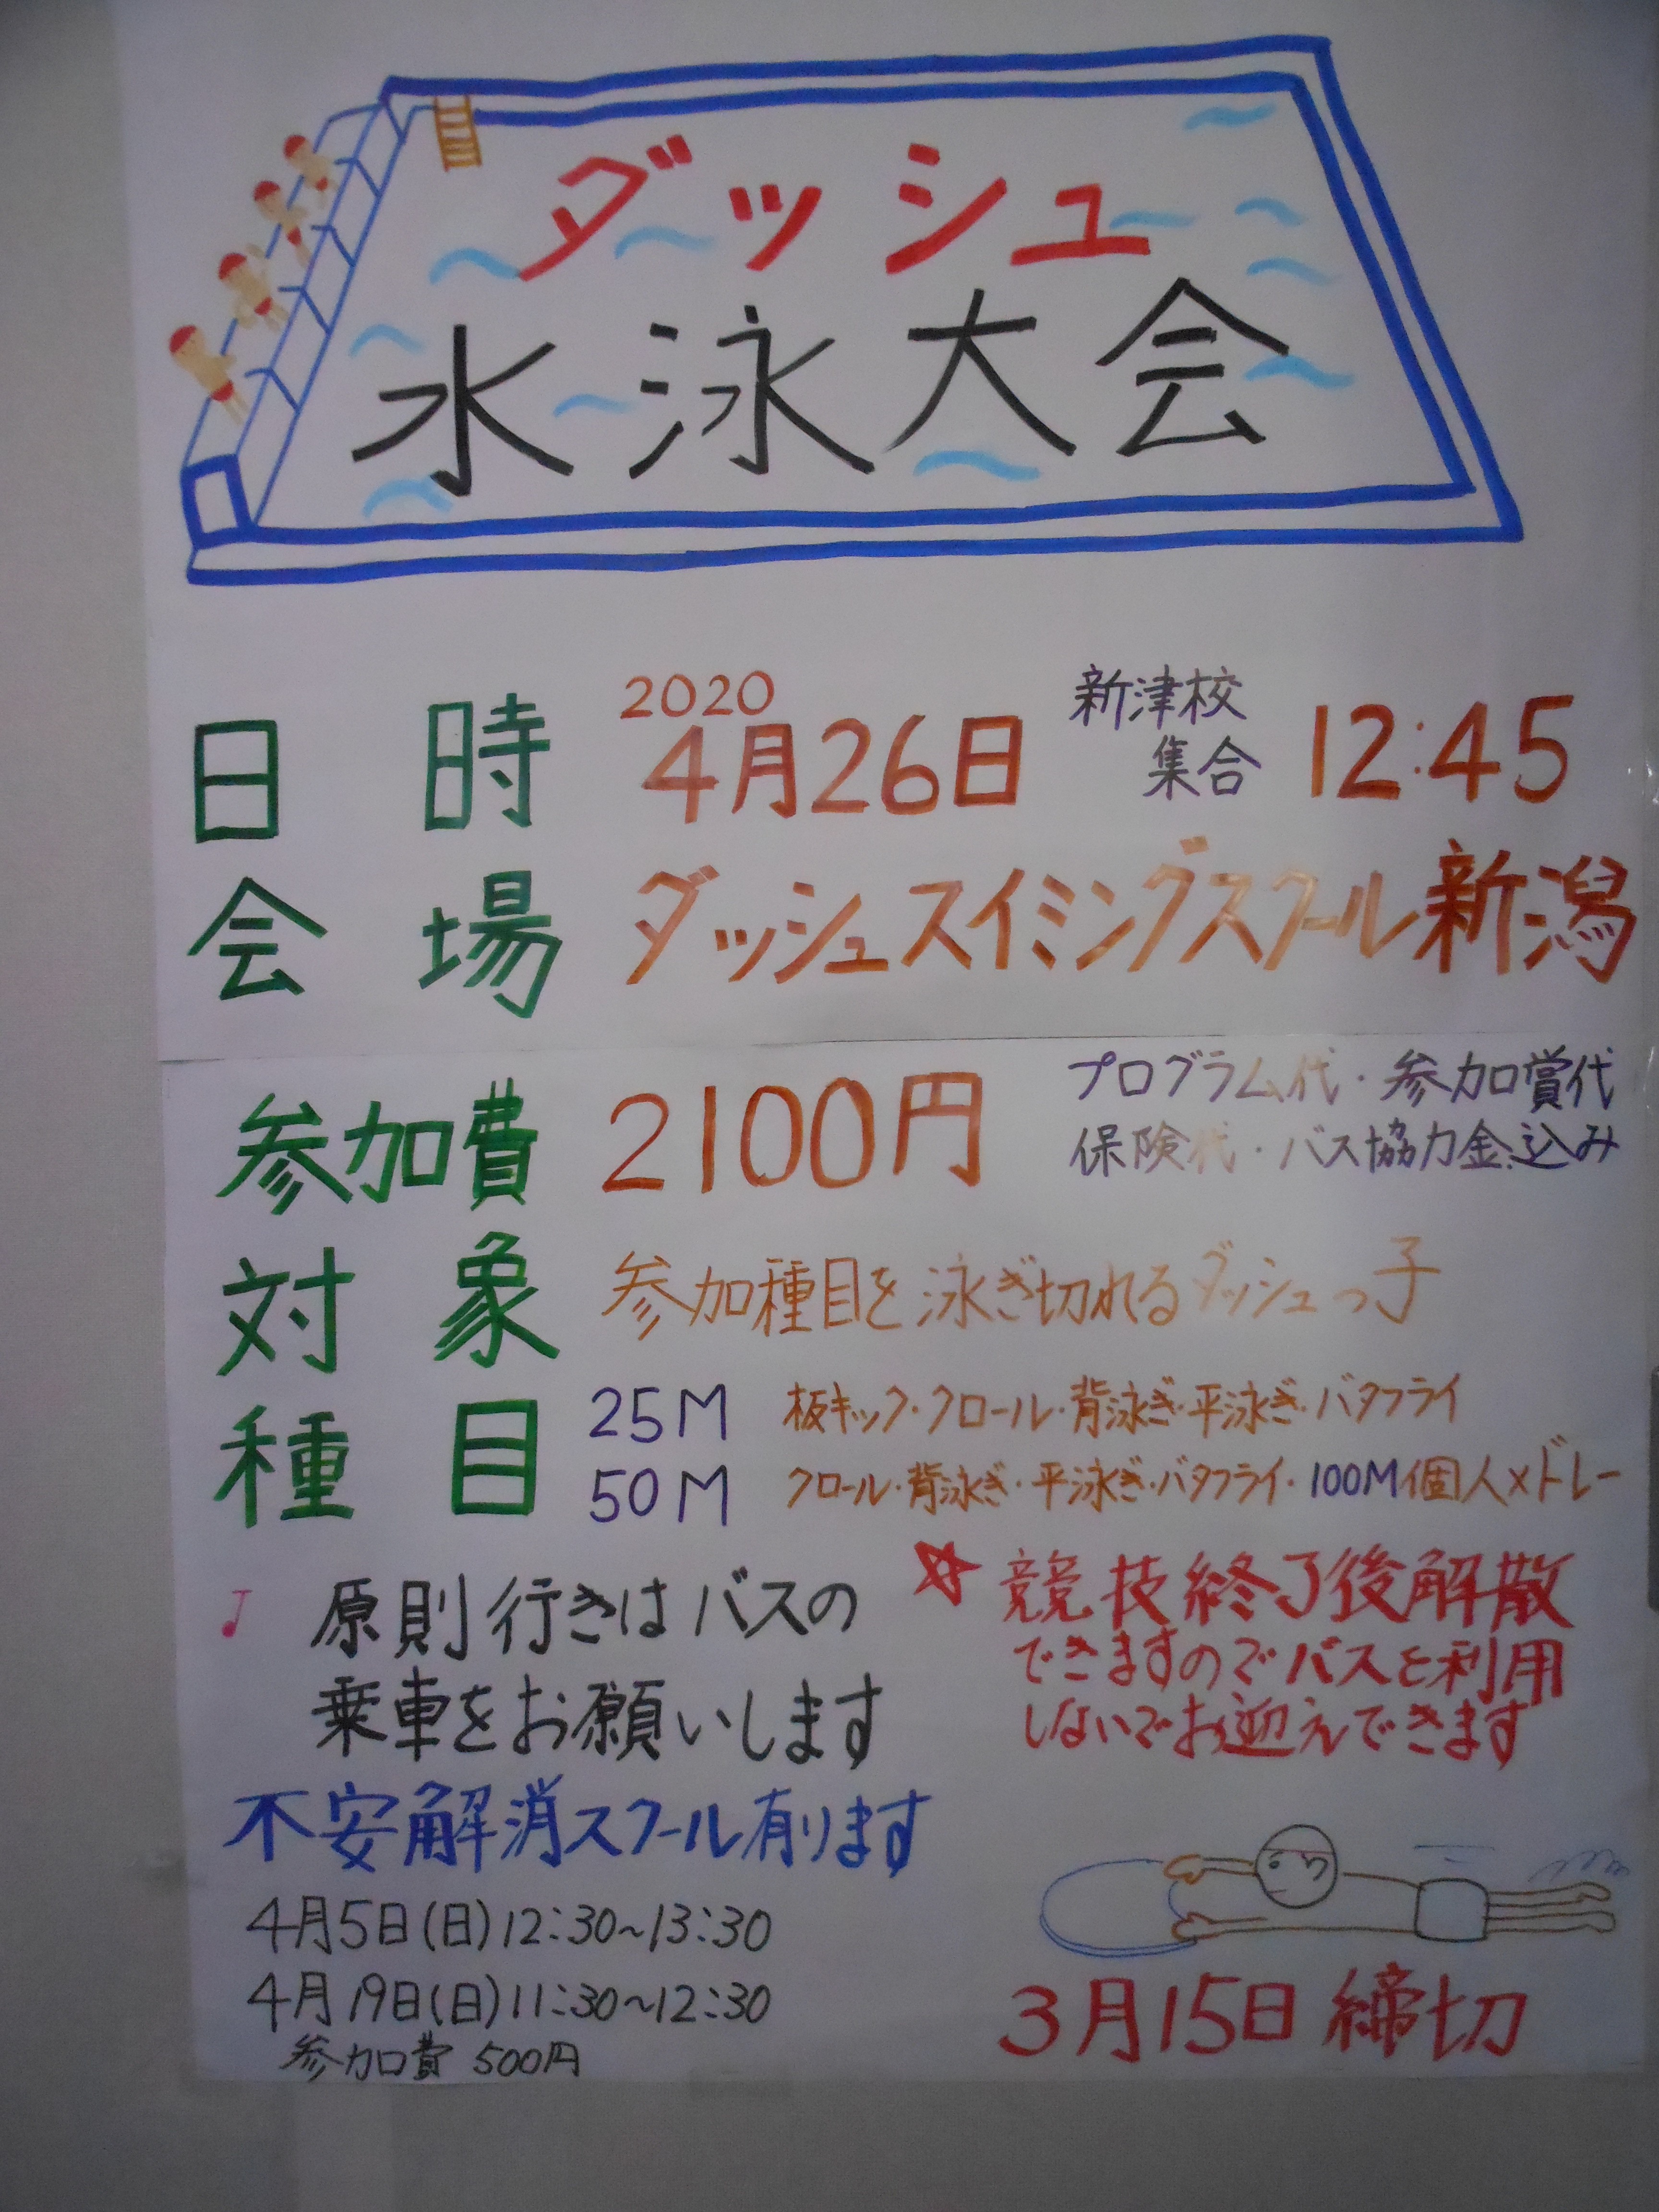 ダッシュ
水泳大会
日時 2020 4月26日 新津校集合 12:45
会場 ダッシュスイミングスクール新潟
参加費 2100円 プログラム代・参加賞代
保険代・バス協力金込み
対象 参加種目を泳ぎ切れるダッシュっ子
種目 25M 板キック・クロール・背泳ぎ・平泳ぎ・バタフライ
50M クロール・背泳ぎ・平泳ぎ・バタフライ・100M個人メドレー
♪ 原則行きはバスの
乗車をお願いします
☆ 競技終了後解散
できますのでバスを利用
しないでお迎えできます
不安解消スクール有ります
4月5日(日)12:30~13:30
4月19日(日)11:30~12:30
参加費 500円
3月15日締切